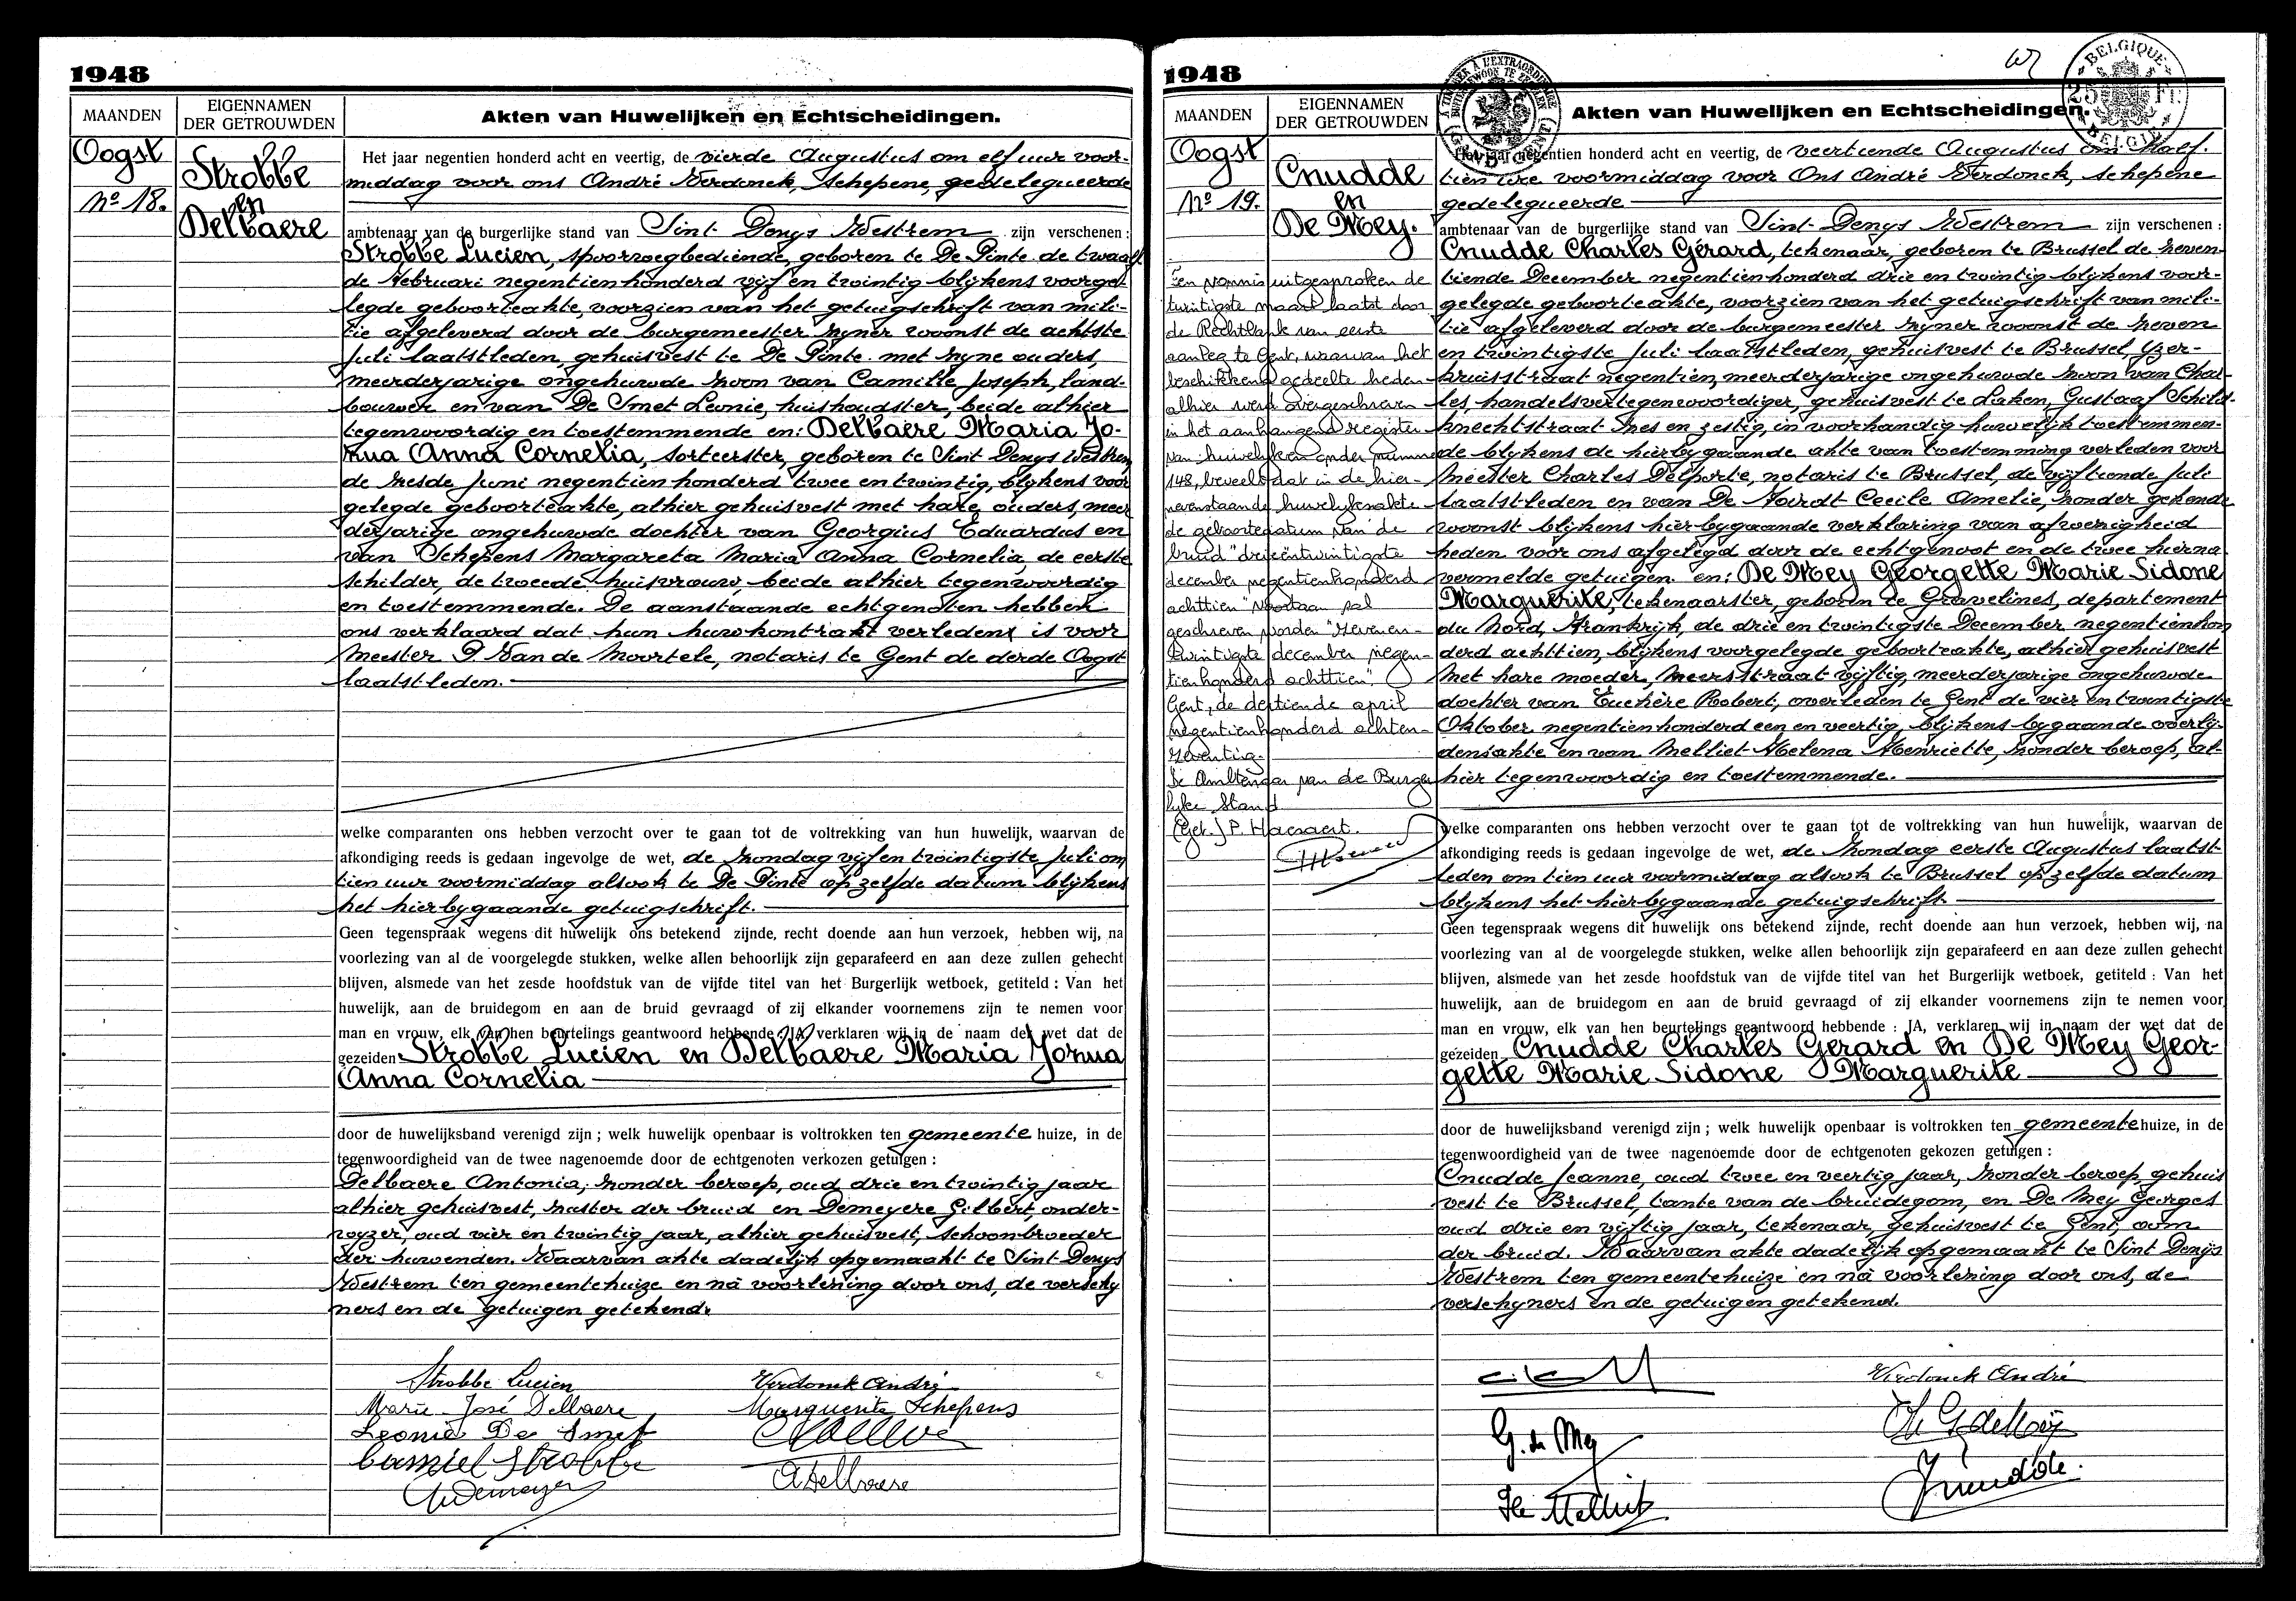 1948
MAANDEN
EIGENNAMEN
DER GETROUWDEN
Akten van Huwelijken en Echtscheidingen.
Oogst
No 18.
Strobbe
en
Delbaere
Het jaar negentien honderd acht en veertig, de vierde Augustus om elf uur voor-
middag voor ons André Verdonck, schepene, gedelegueerde
ambtenaar van de burgerlijke stand van Sint Denys Westrem zijn verschenen :
Strobbe Lucien, spoorwegbediende, geboren te De Pinte de twaalf
de Februari negentienhonderd vijf en twintig blijkens voorge-
legde geboorteakte, voorzien van het getuigschrift van mili-
tie afgeleverd door de burgemeester zyner woonst de achtste
Juli laatstleden, gehuisvest te De Pinte met zyne ouders,
meerderjarige ongehuwde zoon van Camille Joseph, land-
bouwer en van De Smet Leonie, huishoudster, beide alhier
tegenwoordig en toestemmende en: Delbaere Maria Jo-
zua Anna Cornelia, sorteerster, geboren te Sint Denys Westrem
de zesde Juni negentienhonderd twee en twintig, blykens voor
gelegde geboorteakte, alhier gehuisvest met hare ouders, meer
derjarige ongehuwde dochter van Georgius Eduardus en
van Schepens Margareta Maria Anna Cornelia, de eerste
schilder, de tweede huisvrouw, beide alhier tegenwoordig
en toestemmende. De aanstaande echtgenoten hebben
ons verklaard dat hun huwkontrakt verleden is voor
Meester P. Van de Moortele, notaris te Gent de derde Oogst
laatstleden.
welke comparanten ons hebben verzocht over te gaan tot de voltrekking van hun huwelijk, waarvan de
afkondiging reeds is gedaan ingevolge de wet, de Zondag vijf en twintigste Juli om
tien uur voormiddag alsook te De Pinte op zelfde datum blijkens
het hierbygaande getuigschrift.
Geen tegenspraak wegens dit huwelijk ons betekend zijnde, recht doende aan hun verzoek, hebben wij, na
voorlezing van al de voorgelegde stukken, welke allen behoorlijk zijn geparafeerd en aan deze zullen gehecht
blijven, alsmede van het zesde hoofdstuk van de vijfde titel van het Burgerlijk wetboek, getiteld : Van het
huwelijk, aan de bruidegom en aan de bruid gevraagd of zij elkander voornemens zijn te nemen voor
man en vrouw, elk van hen beurtelings geantwoord hebbende : JA, verklaren wij in de naam der wet dat de
gezeiden Strobbe Lucien en Delbaere Maria Jozua
Anna Cornelia
door de huwelijksband verenigd zijn ; welk huwelijk openbaar is voltrokken ten gemeente huize, in de
tegenwoordigheid van de twee nagenoemde door de echtgenoten verkozen getuigen :
Delbaere Antonia, zonder beroep, oud drie en twintig jaar
alhier gehuisvest, zuster der bruid en Demeyere Gilbert, onder-
wyzer, oud vier en twintig jaar, alhier gehuisvest, schoonbroeder
der huwenden. Waarvan akte dadelijk opgemaakt te Sint Denys
Westrem ten gemeentehuize en na voorlezing door ons, de verschy
ners en de getuigen getekend.
Strobbe Lucien
Verdonck André
Marie-José Delbaere
Marguerite Schepens
Leonie De Smet
Camiel Strobbe
ADelbaere
1948
BELGIQUE
25 Fr.
BELGIE
MAANDEN
EIGENNAMEN
DER GETROUWDEN
Akten van Huwelijken en Echtscheidingen.
Oogst
No 19.
Cnudde
en
De Mey.
Het jaar negentien honderd acht en veertig, de veertiende Augustus om half
tien ure voormiddag voor Ons André Verdonck, schepene
gedelegueerde
ambtenaar van de burgerlijke stand van Sint Denys Westrem zijn verschenen :
Cnudde Charles Gérard, tekenaar, geboren te Brussel de zeven-
tiende December negentienhonderd drie en twintig blykens voor-
gelegde geboorteakte, voorzien van het getuigschrift van mili-
tie afgeleverd door de burgemeester zyner woonst de zeven
en twintigste Juli laatstleden, gehuisvest te Brussel, Yzer-
kruisstraat negentien, meerderjarige ongehuwde zoon van Char-
les, handelsvertegenwoordiger, gehuisvest te Laken, Gustaaf Schild-
knechtstraat zes en zestig, in voorhandig huwelijk toestemmen-
de blykens de hierbygaande akte van toestemming verleden voor
Meester Charles Delporte, notaris te Brussel, de vijftiende Juli
laatstleden en van De Noirdt Cecile Amelie, zonder gekende
woonst blijkens hierbygaande verklaring van afwezigheid
heden voor ons afgelegd door de echtgenoot en de twee hierna
vermelde getuigen. en: De Mey Georgette Marie Sidone
Marguerite, tekenaarster, geboren te Gravelines, departement
du Nord, Frankrijk, de drie en twintigste December negentienhon
derd achttien, blijkens voorgelegde geboorteakte, alhier gehuisvest
met hare moeder, Meersstraat vijftig, meerderjarige ongehuwde
dochter van Euchère Robert, overleden te Gent de vier en twintigste
Oktober negentienhonderd een en veertig, blykens bygaande overly-
densakte en van Melliet Helena Henriette, zonder beroep, al-
hier tegenwoordig en toestemmende.
Een vonnis uitgesproken de
twintigste maart laatst door
de Rechtbank van eerste
aanleg te Gent, waarvan het
beschikkend gedeelte heden
alhier werd overgeschreven
in het aanhangend register
van huwelijken onder nummer
148, beveelt dat in de hier-
nevenstaande huwelijksakte
de geboortedatum van de
bruid "drieëntwintigste
december negentienhonderd
achttien" voortaan zal
geschreven worden "zevenen-
twintigste december negen-
tienhonderd achttien".
Gent, de dertiende april
negentienhonderd achten-
zeventig.
De Ambtenaar van de Burger
lijke Stand
(Get.) P. Haesaert.
welke comparanten ons hebben verzocht over te gaan tot de voltrekking van hun huwelijk, waarvan de
afkondiging reeds is gedaan ingevolge de wet, de Zondag eerste Augustus laatst
leden om tien uur voormiddag alsook te Brussel op zelfde datum
blykens het hierbygaande getuigschrift.
Geen tegenspraak wegens dit huwelijk ons betekend zijnde, recht doende aan hun verzoek, hebben wij, na
voorlezing van al de voorgelegde stukken, welke allen behoorlijk zijn geparafeerd en aan deze zullen gehecht
blijven, alsmede van het zesde hoofdstuk van de vijfde titel van het Burgerlijk wetboek, getiteld : Van het
huwelijk, aan de bruidegom en aan de bruid gevraagd of zij elkander voornemens zijn te nemen voor
man en vrouw, elk van hen beurtelings geantwoord hebbende : JA, verklaren wij in naam der wet dat de
gezeiden Cnudde Charles Gerard en De Mey Geor-
gette Marie Sidone Marguerite
door de huwelijksband verenigd zijn ; welk huwelijk openbaar is voltrokken ten gemeente huize, in de
tegenwoordigheid van de twee nagenoemde door de echtgenoten gekozen getuigen :
Cnudde Jeanne, oud twee en veertig jaar, zonder beroep gehuis
vest te Brussel, tante van de bruidegom, en De Mey Georges
oud drie en vijftig jaar, tekenaar, gehuisvest te Gent, oom
der bruid. Waarvan akte dadelijk opgemaakt te Sint Denijs
Westrem ten gemeentehuize en na voorlezing door ons, de
verschyners en de getuigen getekend.
Verdonck André
G. de Mey